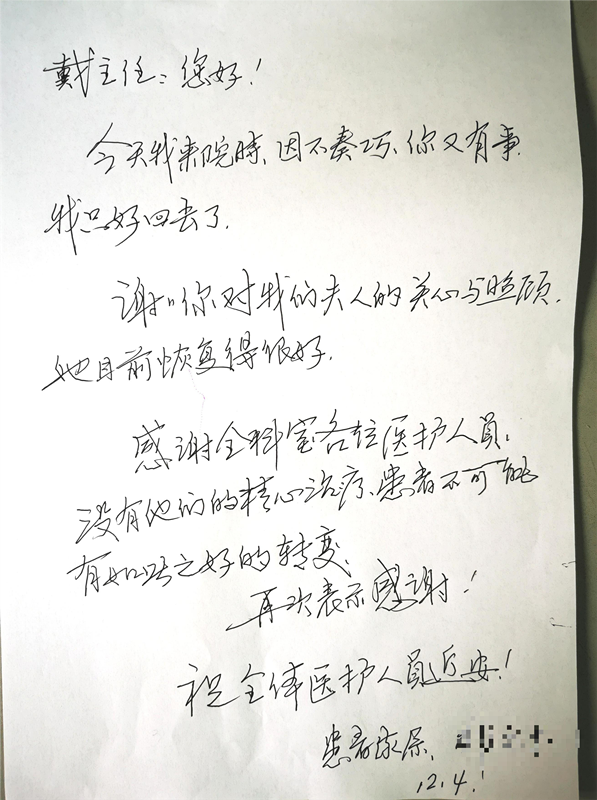 戴主任：您好！
今天我来院時、因不奏巧、你又有事.
我只好回去了.
谢谢你对我的夫人的关心与照顾.
她目前恢复得很好.
感谢全科室各位医护人员.
没有他们的精心治疗、患者不可能
有如此之好的转变、
再次表示感谢！
祝全体医护人员近安！
患者家属、
12.4.!